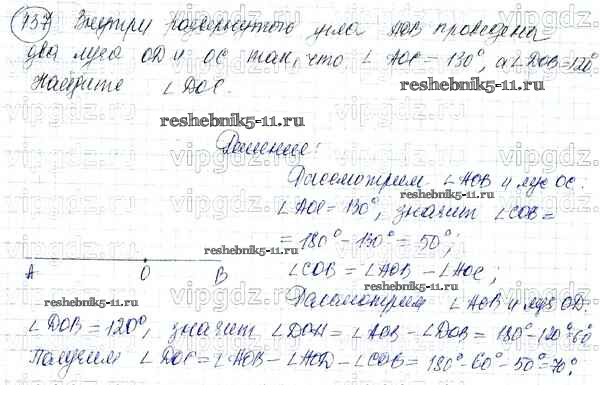 137 Внутри развернутого угла AOB проведена
два луча OD и OC так, что ∠ AOC = 130°, а ∠DOB=120°
Найдите ∠DOC.
reshebnik5-11.ru
reshebnik5-11.ru
Решение:
Рассмотрим ∠AOB и луч OC:
reshebnik5-11.ru
∠AOC = 130°, значит ∠COB =
= 180° - 130° = 50°;
reshebnik5-11.ru
A O B
∠COB = ∠AOB - ∠AOC;
reshebnik5-11.ru
Рассмотрим ∠AOB и луч OD:
∠DOB = 120°, значит ∠DOA = ∠AOB - ∠DOB = 180°-120°=60°
Получим ∠DOC = ∠AOB - ∠AOD - ∠COB = 180°-60°-50°=70°.
reshebnik5-11.ru
vipgdz.ru